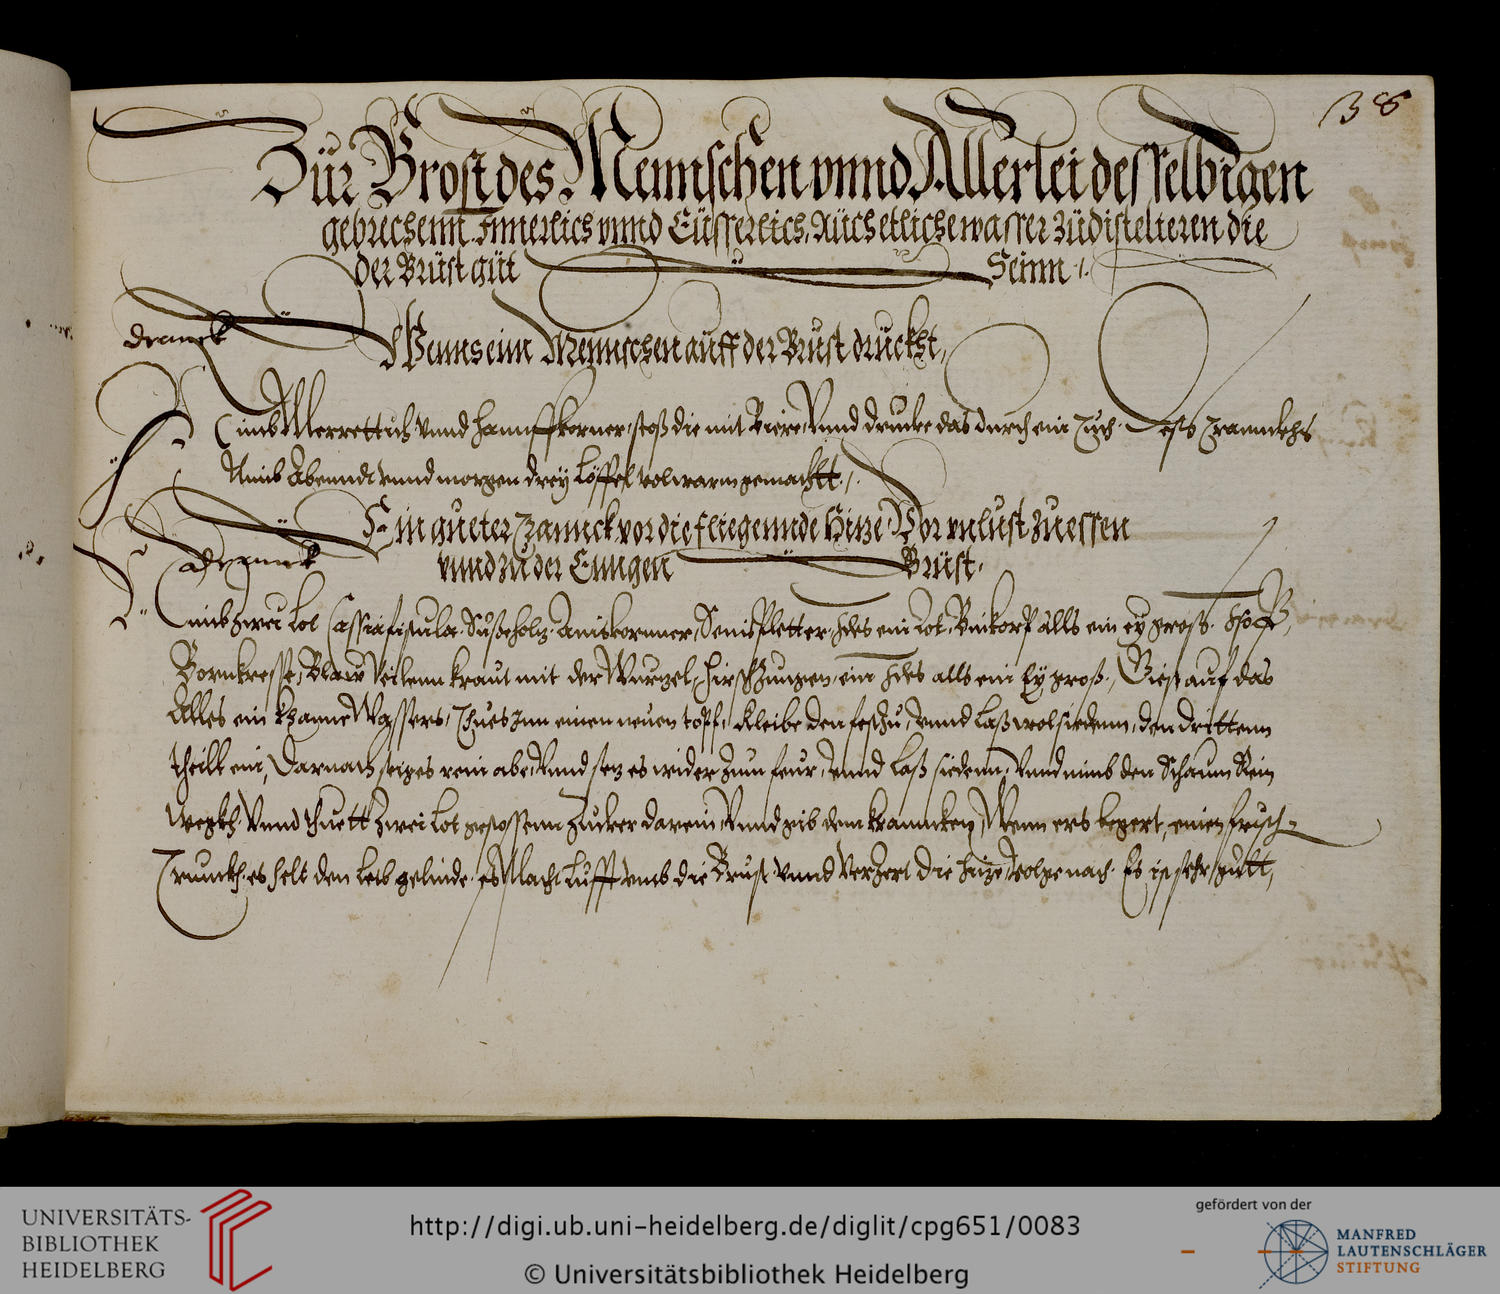 138
Zur Brost des Mennschen vnnd Allerlei desselbigen
gebrechenn Innerlich vnnd Eusserlich, Auch etliche wasser zu distelieren die
der Brust gut Seinn
dranck
Wenns ein Mennschen auff der Brust druckht,
Nimb Merrettich vnnd hannffkorner, stoß die mit Biere, Vnnd drucke das durch ein Tuch
Nimb Abenndt vnnd morgen drey Löffel vol warm gemachtt
Ein gueter Trannck vor die fliegennde Hitze Vor vnlust zu essen
dranck
vnnd zu der Enngen Brust
Nimb zwei Lot Cassia fistula Sußeholtz Aniskornner, Senis Pletter, Jdes ein Lot, alls ein ey groß
Bornkresse, Blaw Veilenn kraut mit der Wurtzel, Hirschzungen, ein Jdes alls ein Ey groß, Gies auf das
Alles ein khanne Wassers, Thues Inn einen neuen topf, Kleibe den fest zu, Vnnd Laß wol siedenn, den drittenn
theill ein, Darnach seiges rein abe, Vnnd setz es wider zum feur, Vnnd laß siedenn, Vnnd nimb den Schaum Rein
wegkh, Vnnd thuett Zwei Lot gestossenn Zucker darein, Vnnd gib dem Krannken, Wenn ers begert, einen frisch-
Trunckh, es helt den Leib gelinde, es Macht Lufft vmb die Brust Vnnd Verzert die hitze, volge nach Es ist sehr gutt,
UNIVERSITÄTS-
BIBLIOTHEK
HEIDELBERG
http://digi.ub.uni-heidelberg.de/diglit/cpg651/0083
© Universitätsbibliothek Heidelberg
gefördert von der
MANFRED
LAUTENSCHLÄGER
STIFTUNG